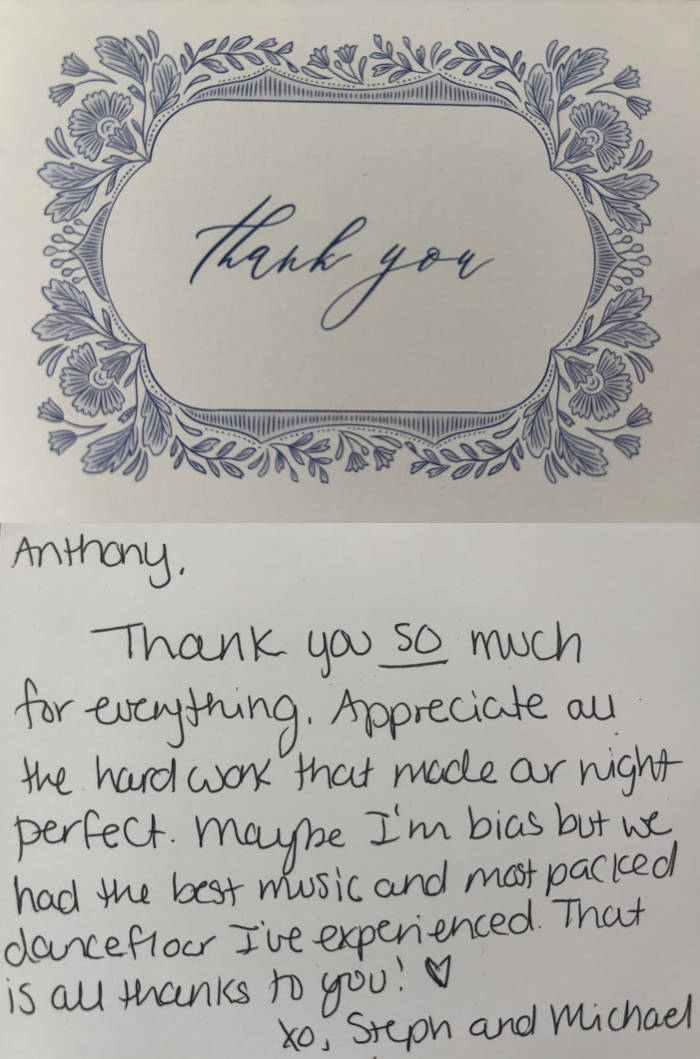 thank you
Anthony,
Thank you so much
for everything. Appreciate all
the hard work that made our night
perfect. Maybe I'm bias but we
had the best music and most packed
dancefloor I've experienced. That
is all thanks to you! ♡
xo, Steph and Michael